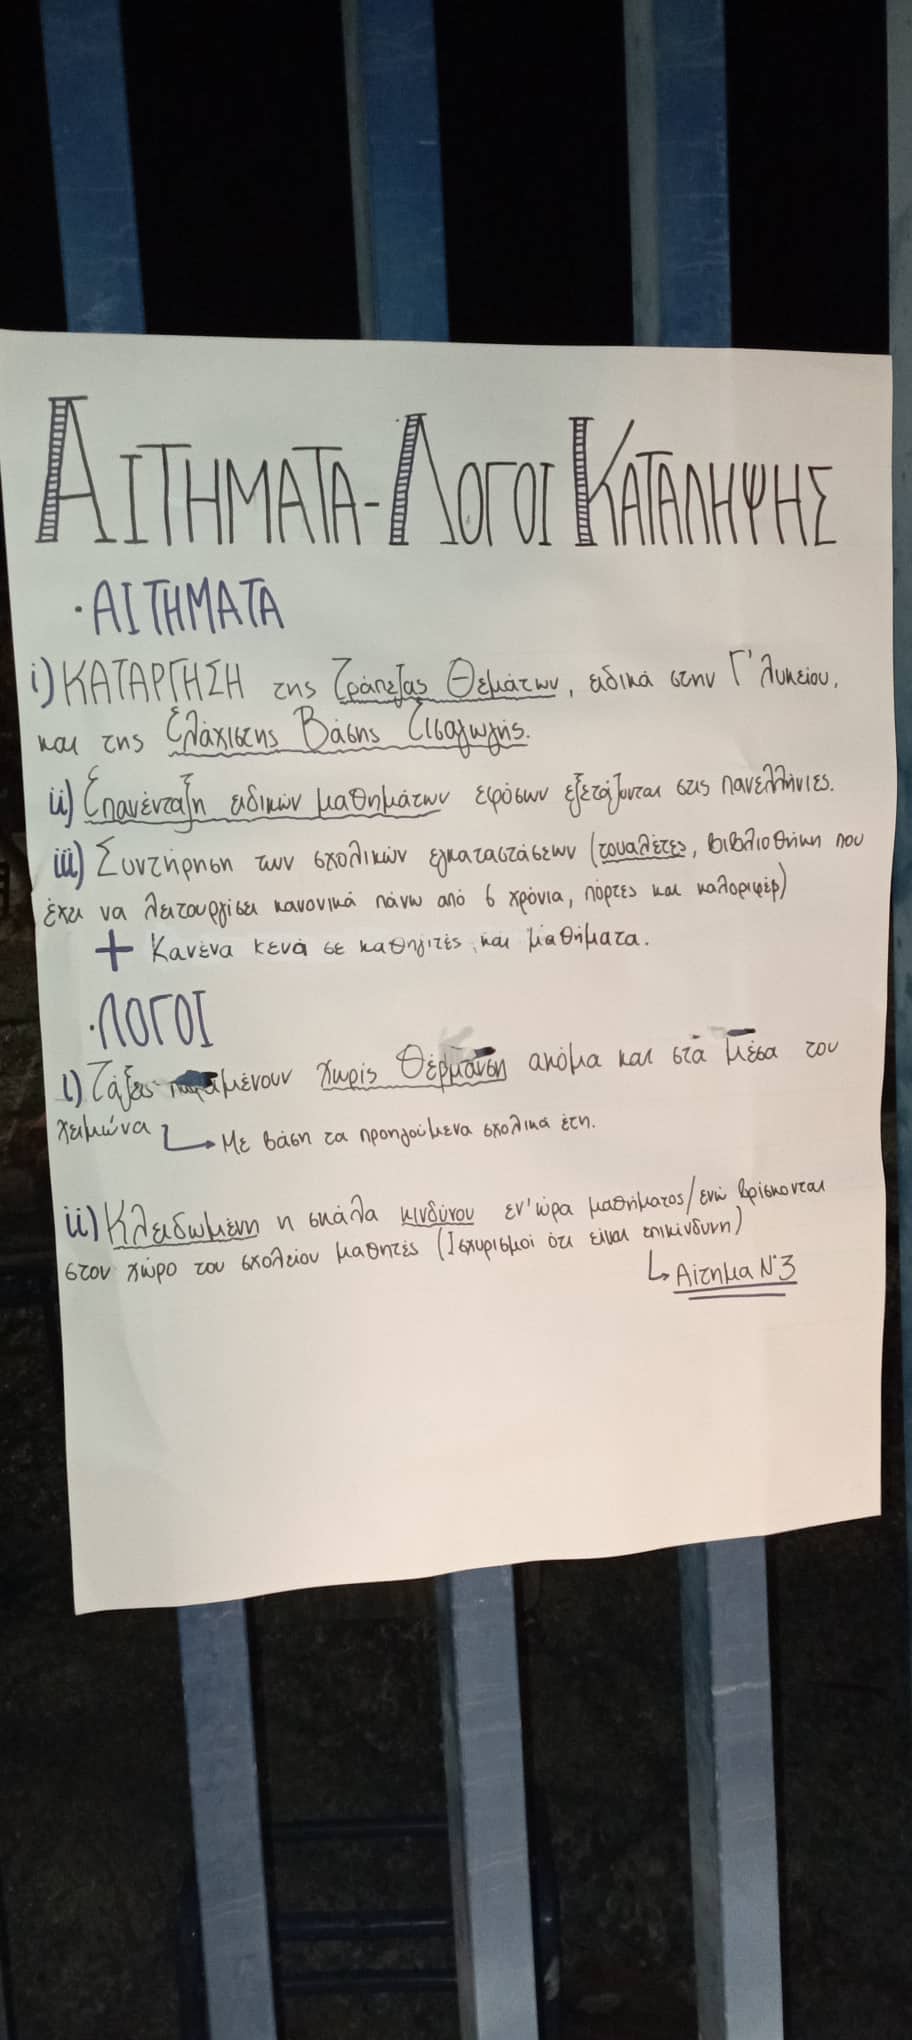 ΑΙΤΗΜΑΤΑ-ΛΟΓΟΙ ΚΑΤΑΛΗΨΗΣ
·ΑΙΤΗΜΑΤΑ
i) ΚΑΤΑΡΓΗΣΗ της Τράπεζας Θεμάτων, ειδικά στην Γ' λυκείου,
και της Ελάχιστης Βάσης Εισαγωγής.
ii) Επανένταξη ειδικών μαθημάτων εφόσων εξετάζονται στις πανελλήνιες.
iii) Συντήρηση των σχολικών εγκαταστάσεων (τουαλέτες, βιβλιοθήκη που
έχει να λειτουργίσει κανονικά πάνω από 6 χρόνια, πόρτες και καλοριφέρ)
+ Κανένα κενά σε καθηγιτές και μαθήματα.
·ΛΟΓΟΙ
i) Τάξεις μένουν χωρίς θέρμανση ακόμα και στα μέσα του
χειμώνα
→ Με βάση τα προηγούμενα σχολικά έτη.
ii) Κλειδωμένη η σκάλα κινδύνου εν' ώρα μαθήματος/ενώ βρίσκονται
στον χώρο του σχολείου μαθητές (Ισχυρισμοί ότι είναι επικίνδυνη)
↳ Αίτημα Ν°3